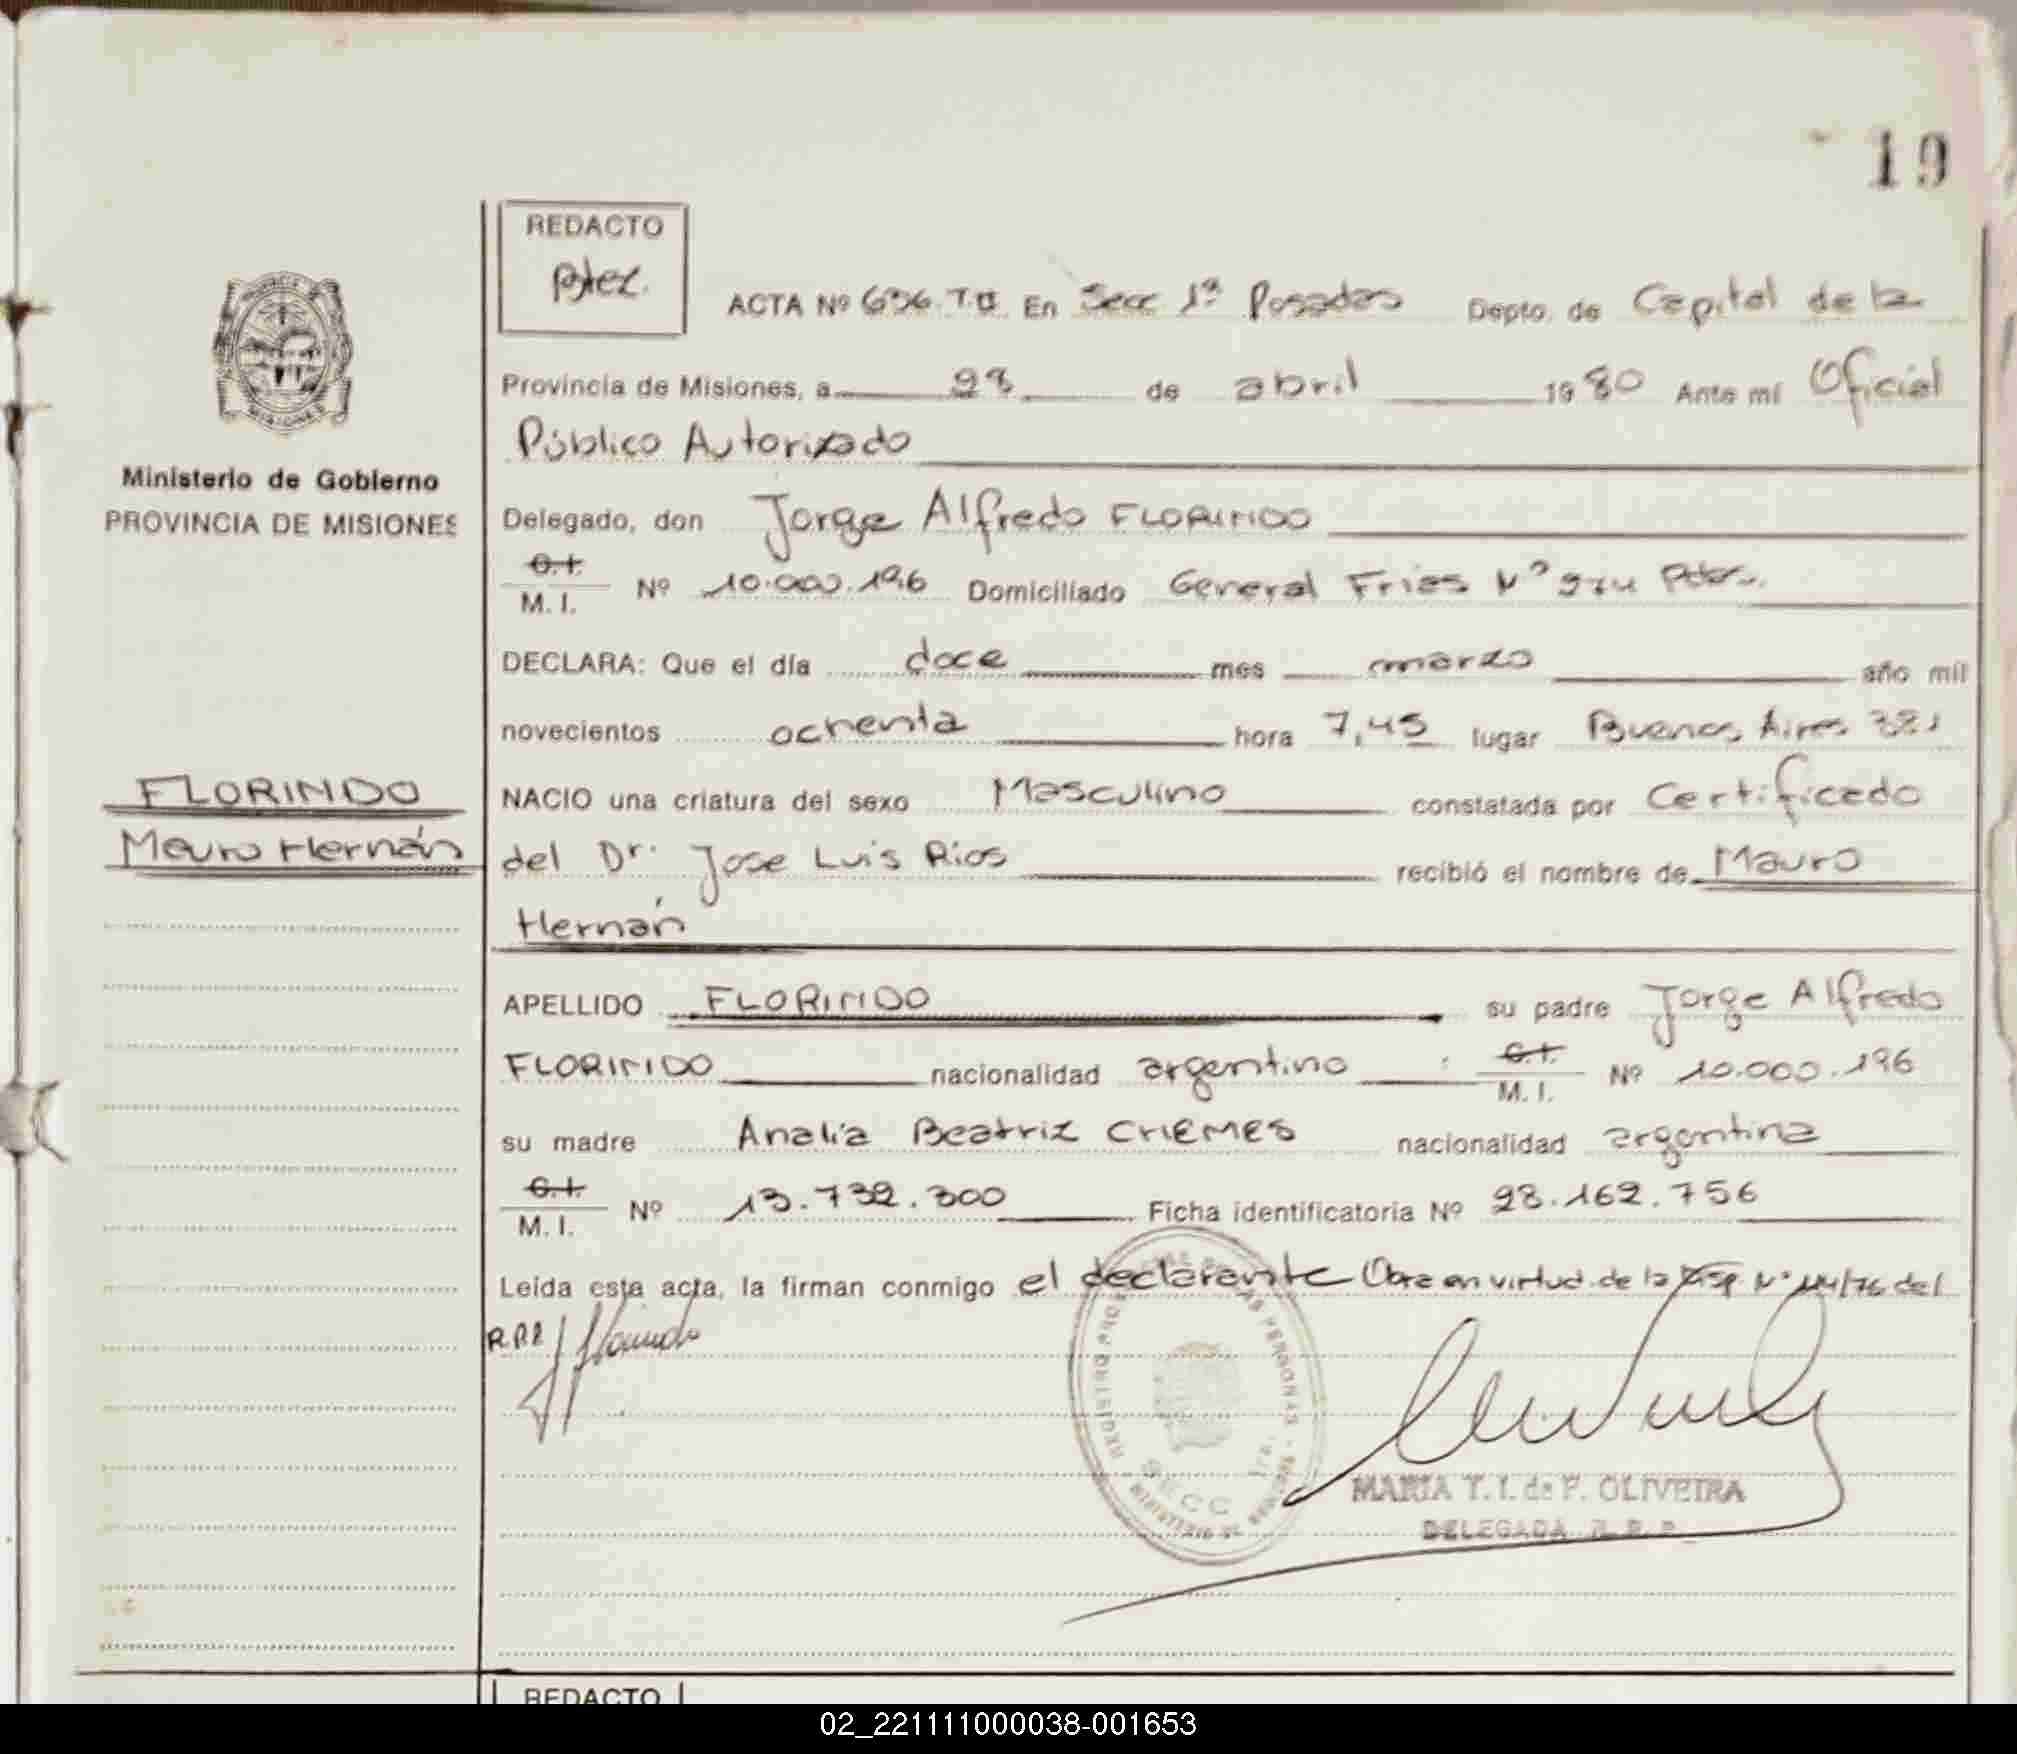 19
REDACTO
ACTA Nº 636. T. II En Secc 1ª Posadas Depto. de Capital de la
Provincia de Misiones, a 28 de abril 1980 Ante mí Oficial
Público Autorizado
Ministerio de Gobierno
PROVINCIA DE MISIONES
Delegado, don Jorge Alfredo FLORINDO
C.I.
M. I. Nº 10.000.196 Domiciliado General Frías Nº
DECLARA: Que el día doce mes marzo año mil
novecientos ochenta hora 7,45 lugar Buenos Aires 381
FLORINDO
NACIO una criatura del sexo Masculino constatada por Certificado
Mauro Hernán
del Dr. Jose Luis Rios recibió el nombre de Mauro
Hernán
APELLIDO FLORINDO su padre Jorge Alfredo
FLORINDO nacionalidad argentino C.I. M. I. Nº 10.000.196
su madre Analía Beatriz CHEMES nacionalidad argentina
C.I.
M. I. Nº 13.732.300 Ficha identificatoria Nº 28.162.756
Leída esta acta, la firman conmigo el declarante Obra en virtud de la Disp Nº 114/76 del
SECC 1ra.
MARIA T. I. de F. OLIVEIRA
DELEGADA R. P. P.
REDACTO
02_221111000038-001653